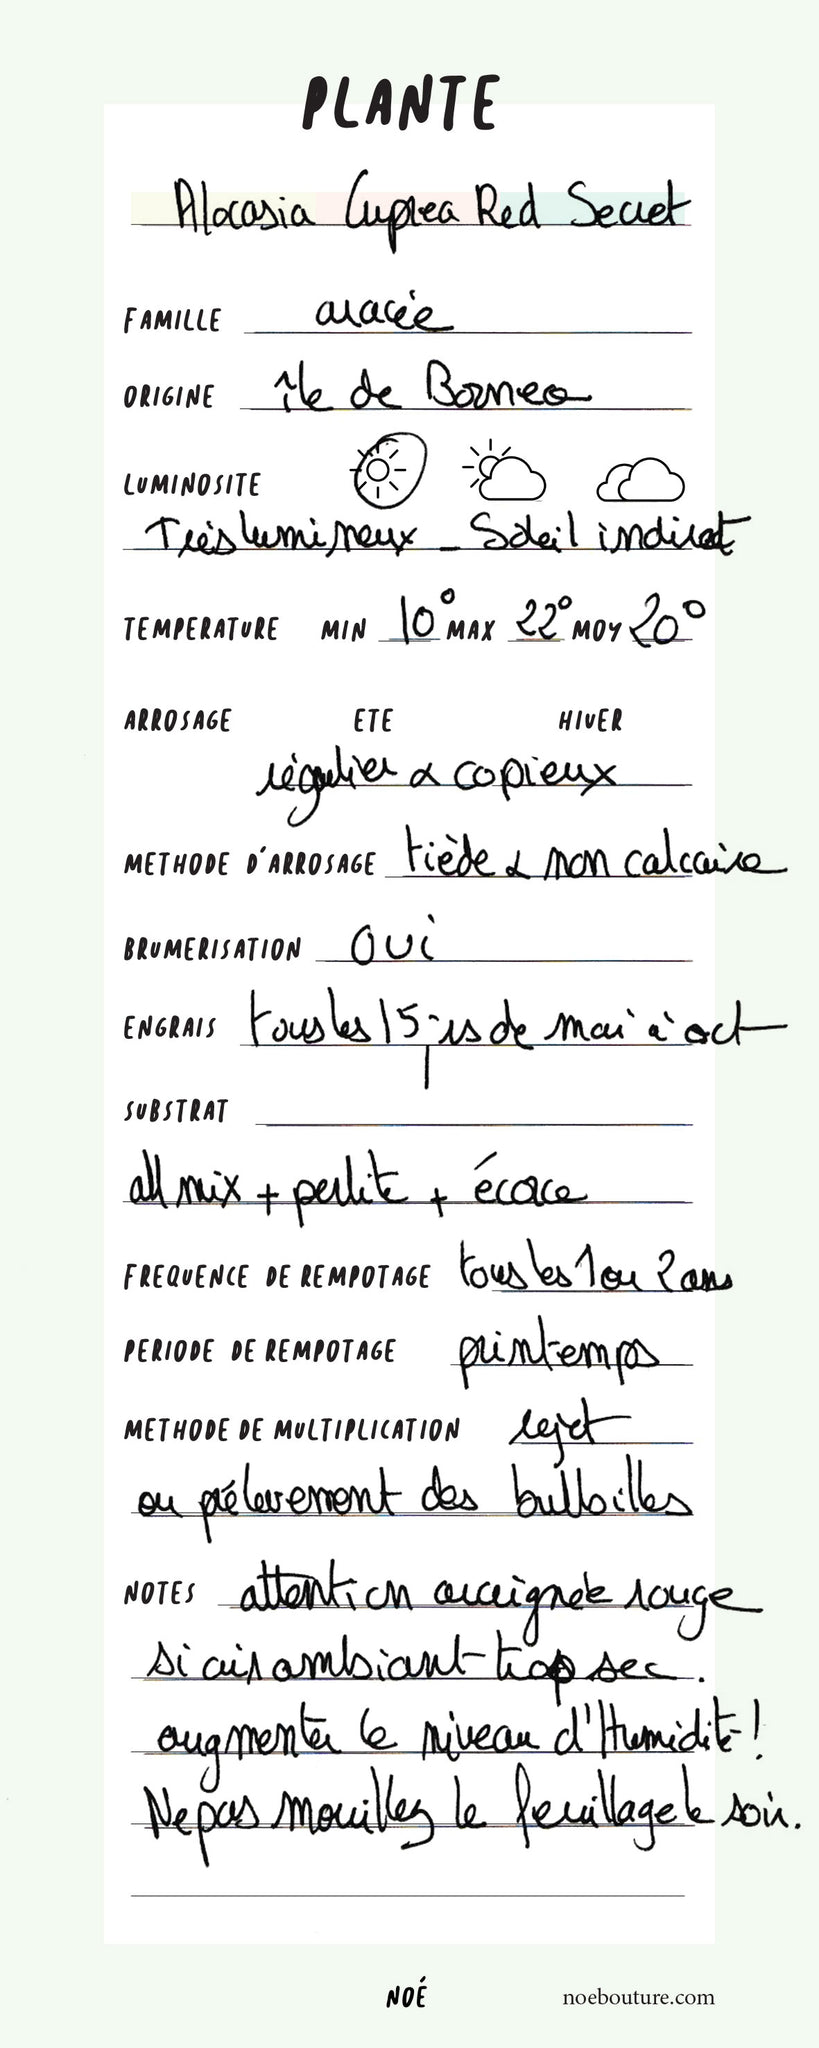 PLANTE
Alocasia Cuprea Red Secret
FAMILLE aracée
ORIGINE île de Borneo
LUMINOSITE
Très lumineux - Soleil indirect
TEMPERATURE MIN 10° MAX 22° MOY 20°
ARROSAGE ETE HIVER
régulier & copieux
METHODE D'ARROSAGE tiède & non calcaire
BRUMERISATION Oui
ENGRAIS tous les 15 jrs de mai à oct
SUBSTRAT
all mix + perlite + écorce
FREQUENCE DE REMPOTAGE tous les 1 ou 2 ans
PERIODE DE REMPOTAGE printemps
METHODE DE MULTIPLICATION rejet
ou prélèvement des bulbilles
NOTES attention araignée rouge
si air ambiant trop sec.
augmenter le niveau d'Humidité !
Ne pas mouillez le feuillage le soir.
NOÉ noebouture.com